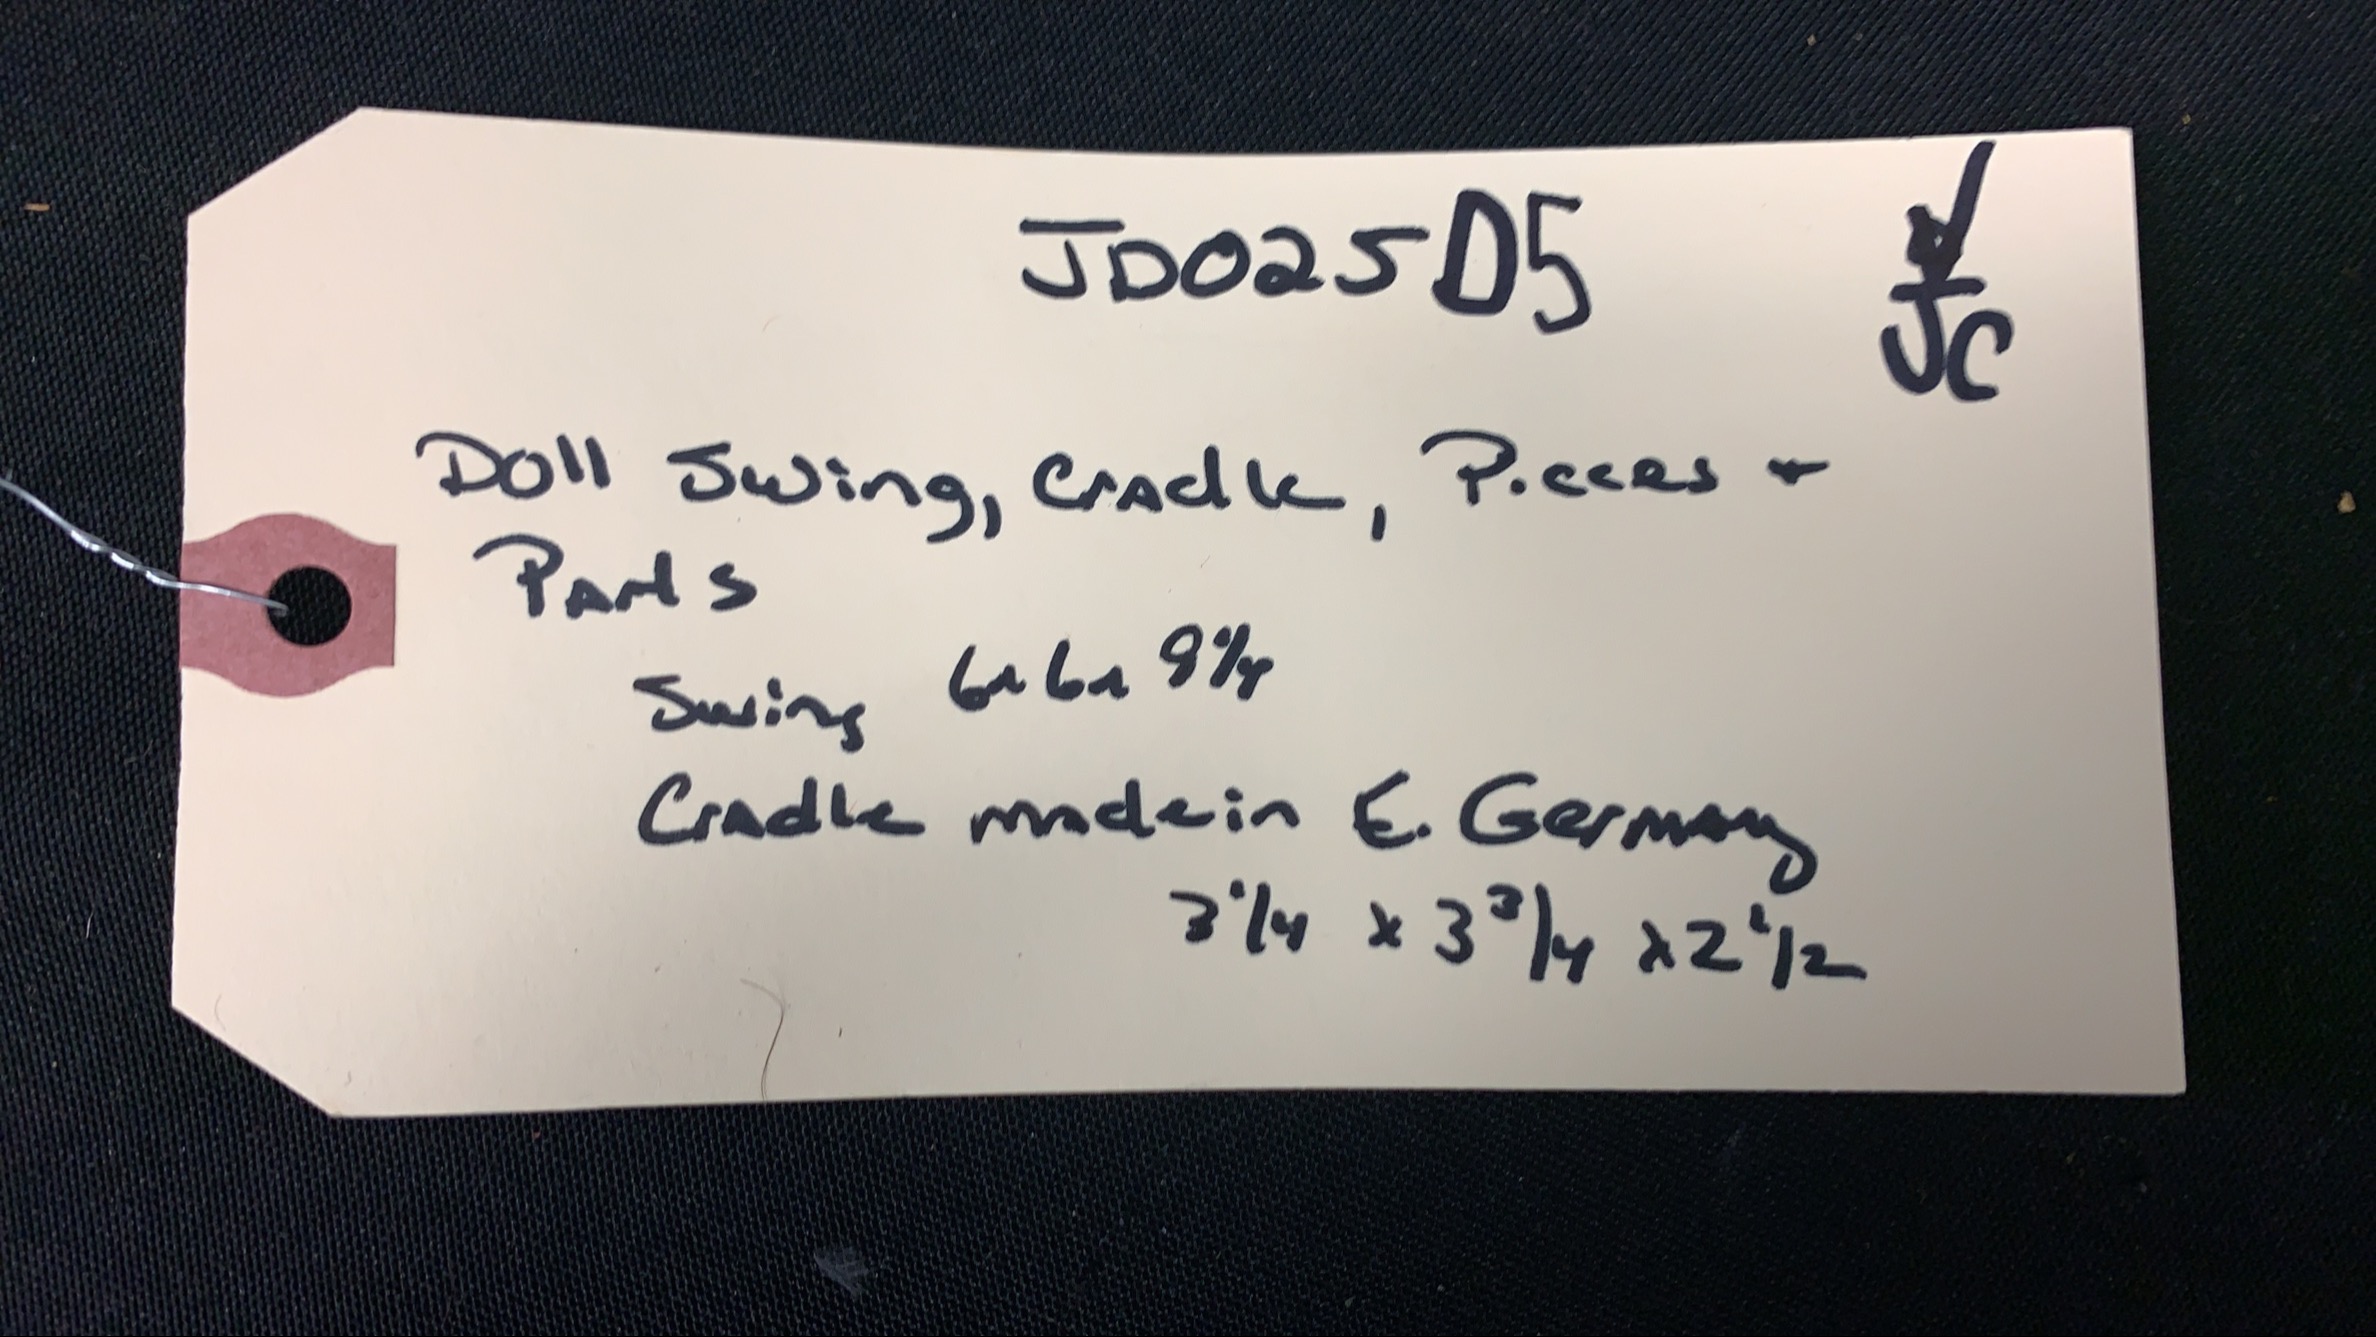 JD025D5
JC
Doll Swing, Cradle, Pieces +
Parts
Swing 6x6x
Cradle made in E. Germany
3 1/4 x 3 3/4 x 2 1/2